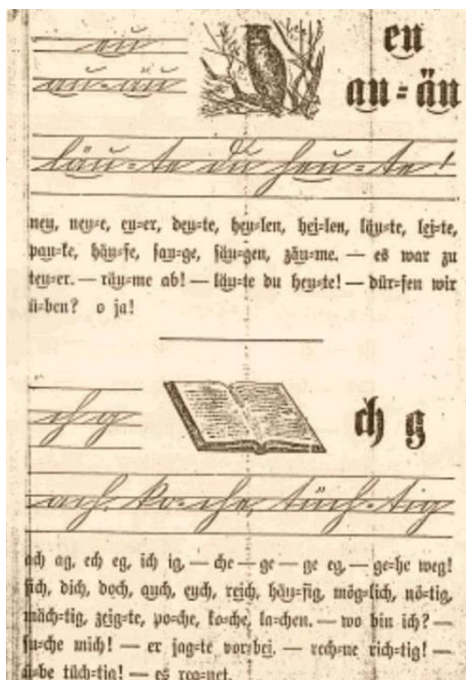 eu
eu
au=äu
au=äu
läu=te du heu=te!
neu, neu=e, eu=er, deu=te, heu=len, hei=len, läu=te, lei=te,
pau=ke, häu=se, sau=ge, säu=gen, zäu=me. — es war zu
teu=er. — räu=me ab! — läu=te du heu=te! — dür=fen wir
ü=ben? o ja!
ch g
ch g
ach, ko=che, tüch=tig
ach ag, ech eg, ich ig, — che — ge — ge eg, — ge=he weg!
sich, dich, doch, auch, euch, reich, häu=fig, mög=lich, nö=tig,
mäch=tig, zeig=te, po=che, ko=che, la=chen. — wo bin ich? —
su=che mich! — er jag=te vor=bei. — rech=ne rich=tig! —
ü=be tüch=tig! — es reg=net.